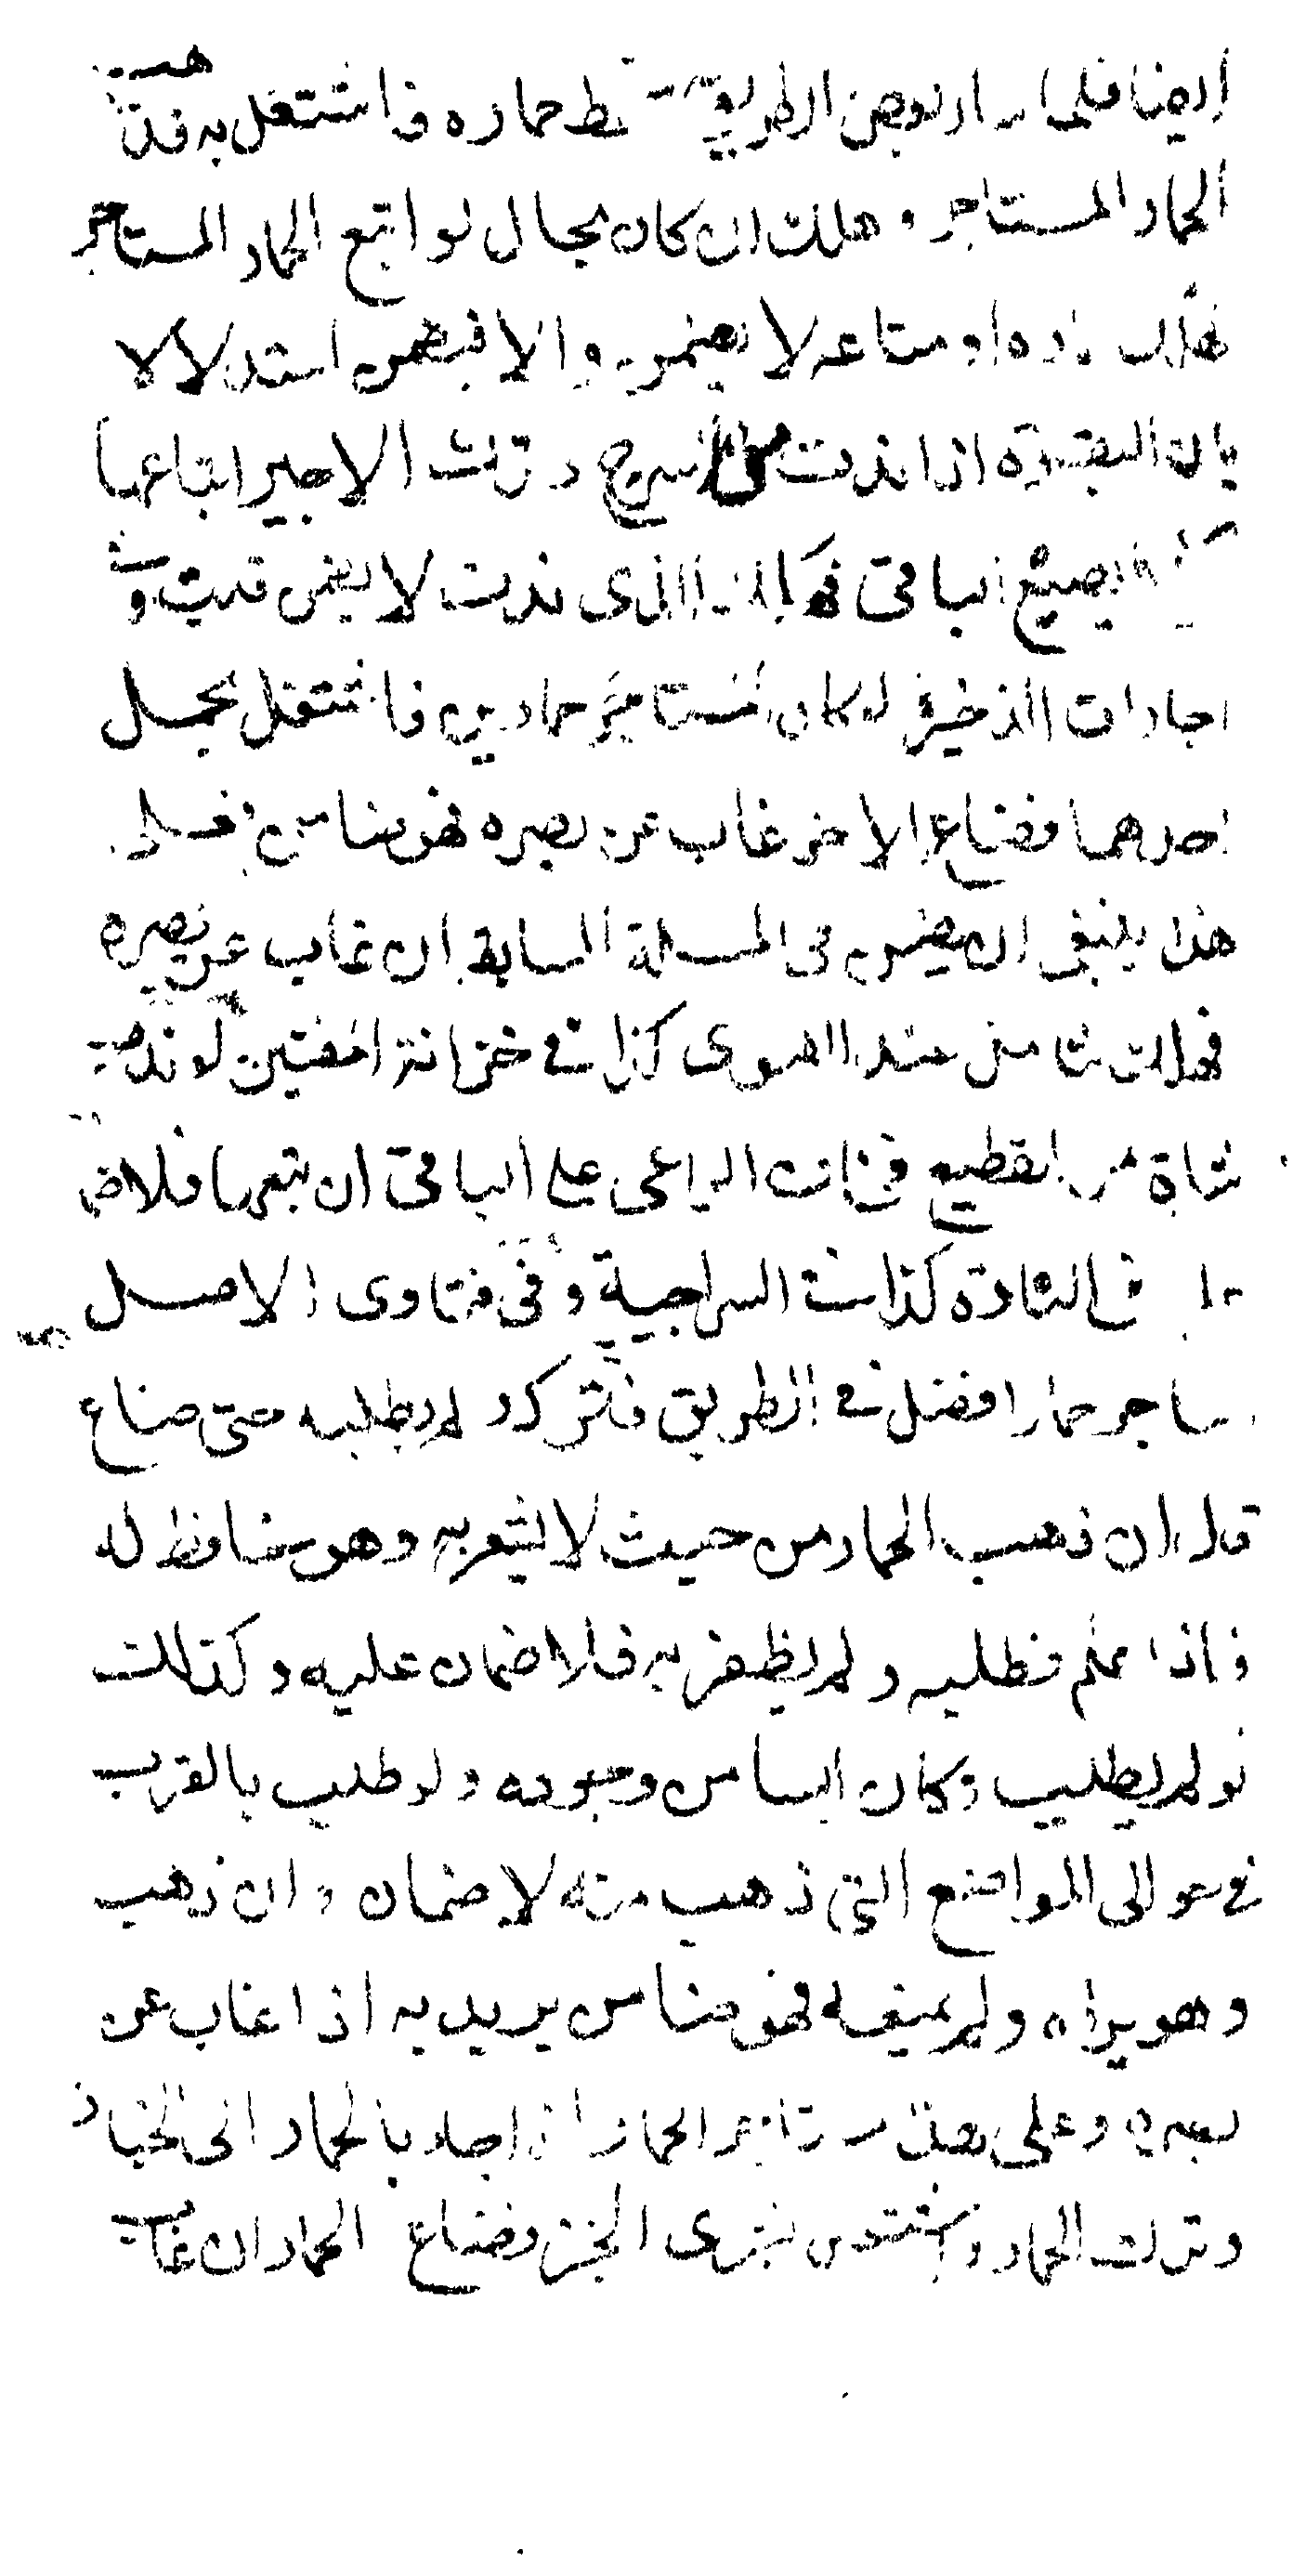 ايضا فلما سار بعض الطريق سقط حماره فاشتغل به فذهب
الحمار المستاجر وهلك ان كان بحال لو اتبع الحمار المستاجر
هلك حماره او متاعه لا يضمن والا فيضمن استدلالا
بان البقرة اذا ندت من السرح وترك الاجير اتباعها
كيلا يضيع الباقى فهلك الذى ندت لا يضمن قلت وفى
اجارات الذخيرة لو كان المستاجر حمارين فاشتغل بحمل
احدهما فضاع الاخر غاب عن بصره فهو ضامن فعلى
هذا ينبغى ان يضمن فى المسئلة السابقة ان غاب عن بصره
فهلك تامل عند الفتوى كذا فى خزانة المفتين لو ندت
شاة من القطيع فخاف الراعى على الباقى ان يتبعها فلا ضمان
فى الشاة كذا فى السراجية وفى فتاوى الاصل
استاجر حمارا فضل فى الطريق فتركه ولم يطلبه حتى ضاع
قال ان ذهب الحمار من حيث لا يشعر به وهو حافظ له
فاذا علم فطلبه ولم يظفر به فلا ضمان عليه وكذلك
لو لم يطلب وكان ايسا من وجوده ولو طلب بالقرب
فى حوالى المواضع التى ذهب منه لا ضمان وان ذهب
وهو يراه ولم يمنعه فهو ضامن يريد به اذا غاب عن
بصره وعلى هذا مستاجر الحمار اذا جاء بالحمار الى الخباز
وترك الحمار واشتغل بشرى الخبز فضاع الحمار ان غاب